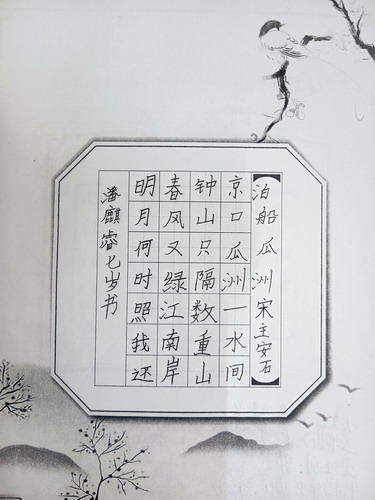 泊船瓜洲 宋 主安石
京口瓜洲一水间
钟山只隔数重山
春风又绿江南岸
明月何时照我还
潘麒睿七岁书